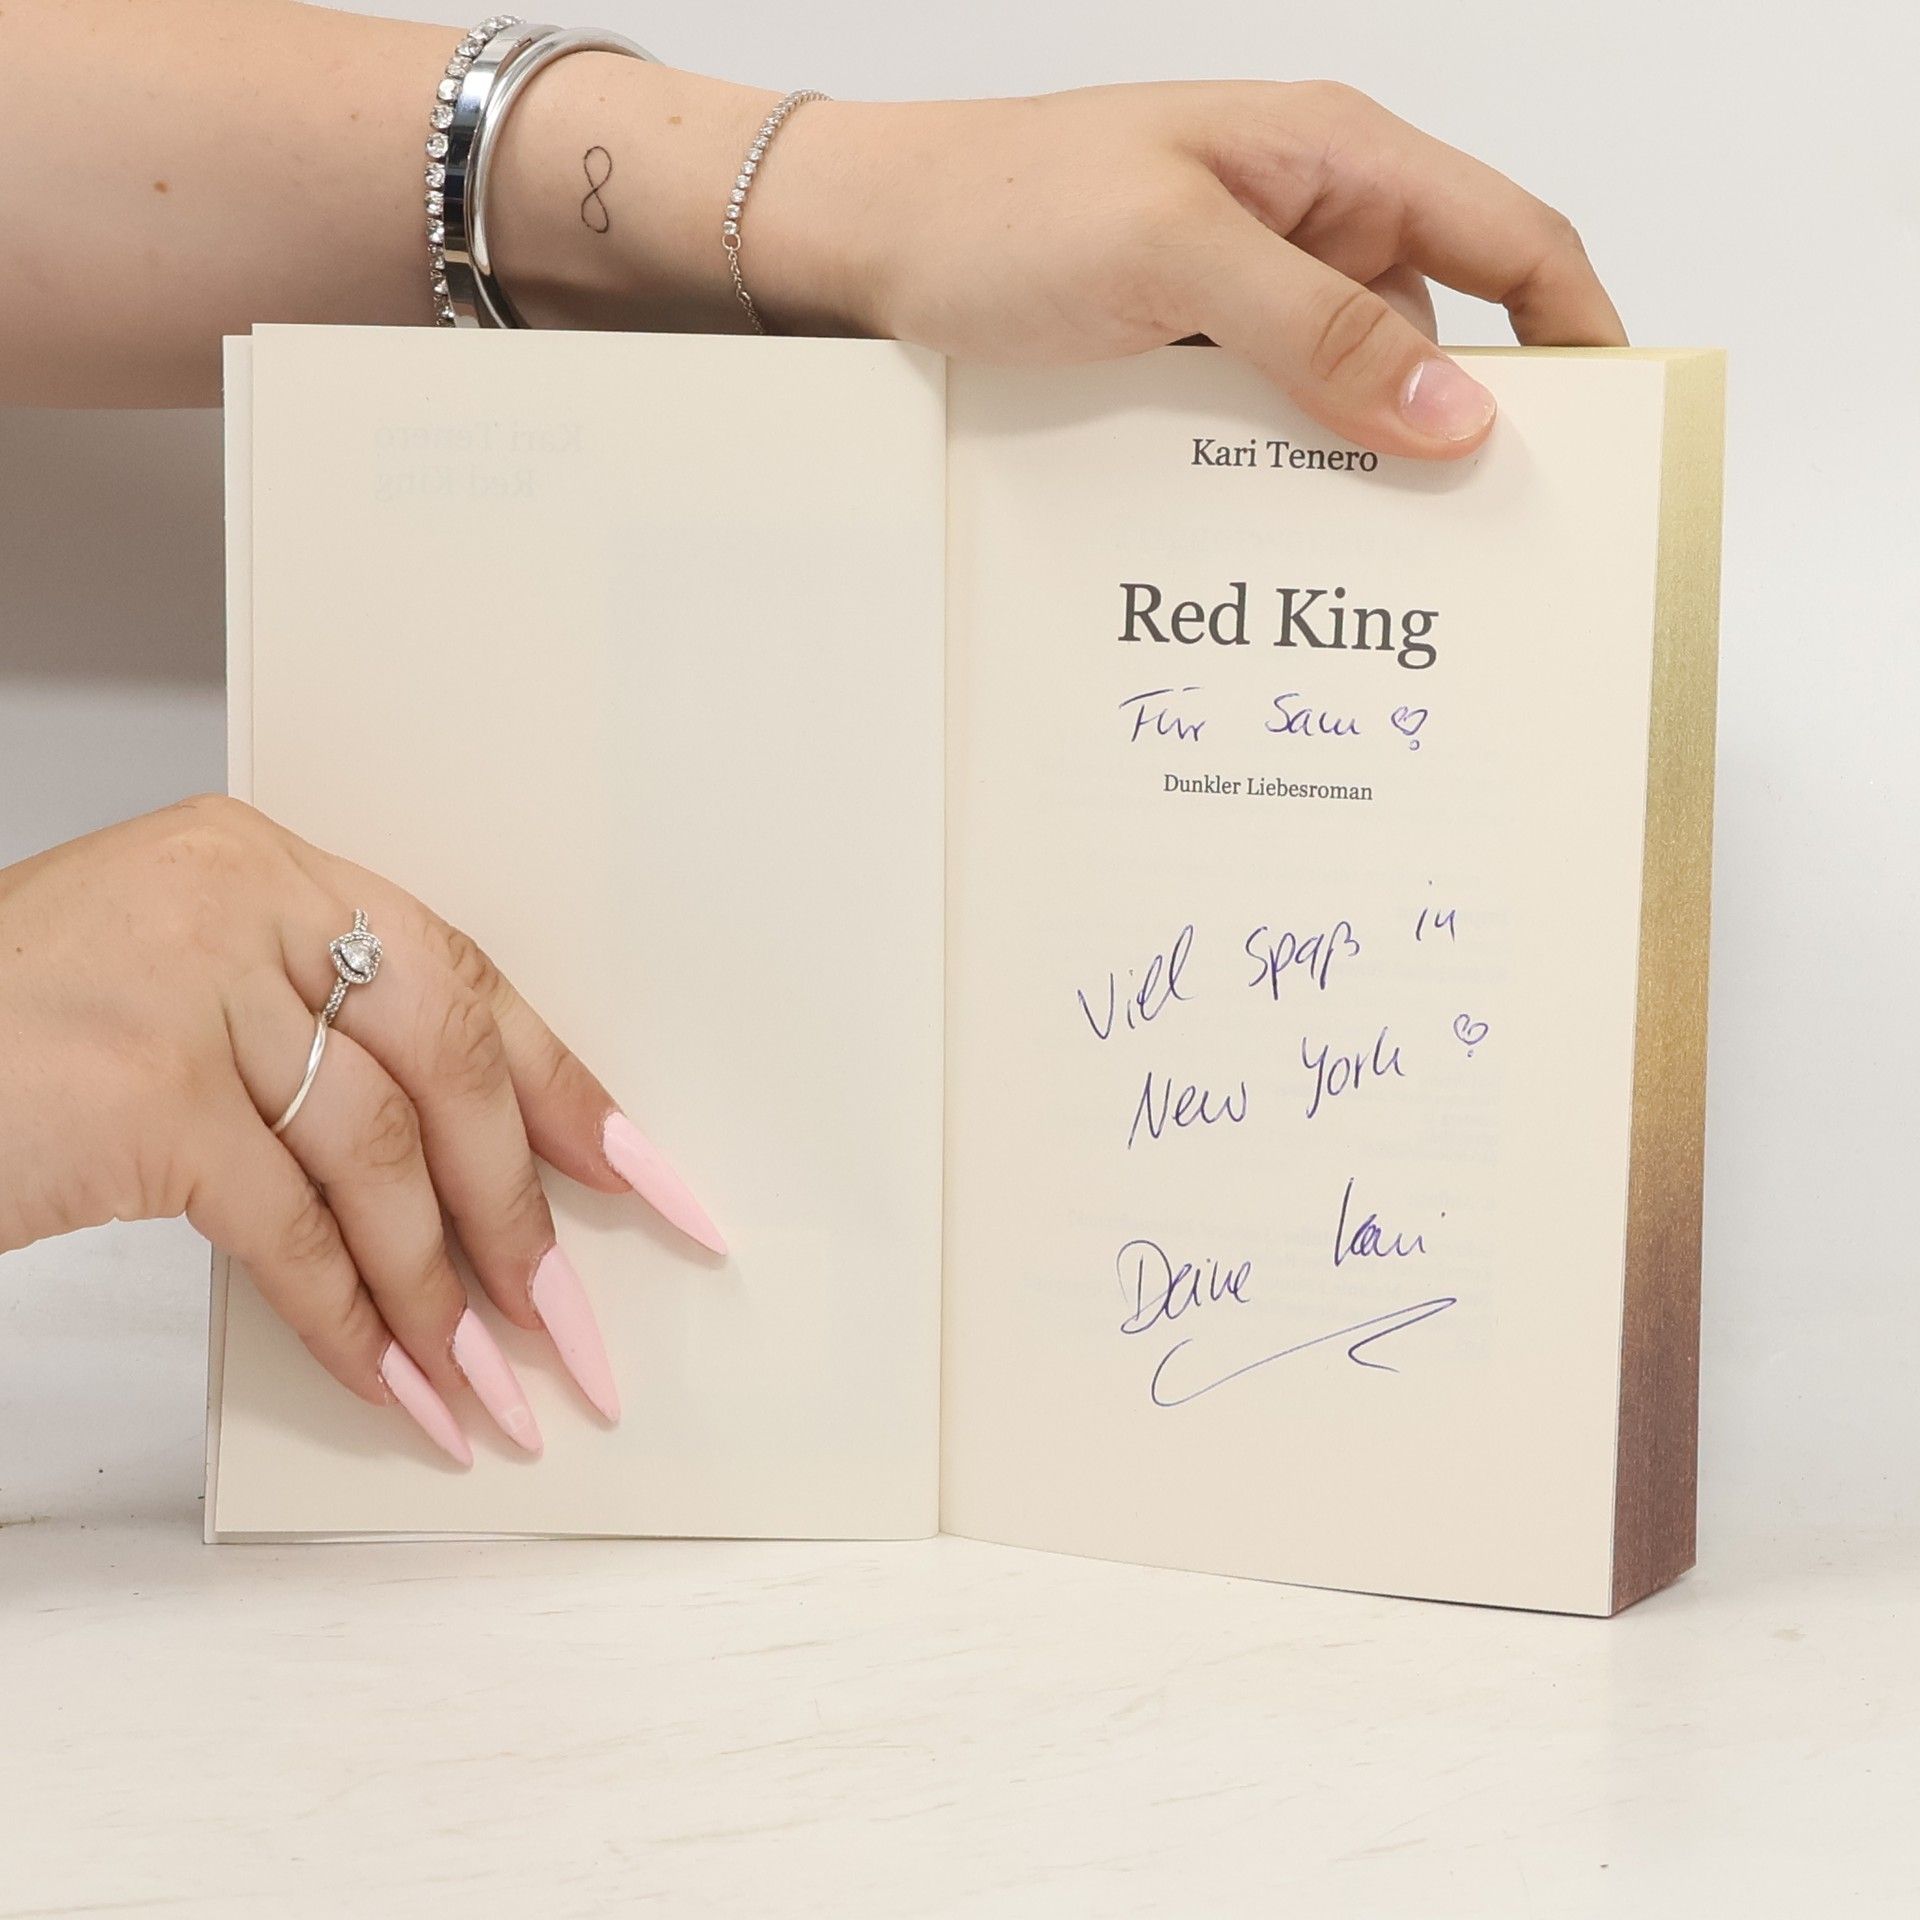 Kari Tenero
Red King
Kari Tenero
Red King
Für Sam
Dunkler Liebesroman
Viel Spaß in
New York
Deine Kari